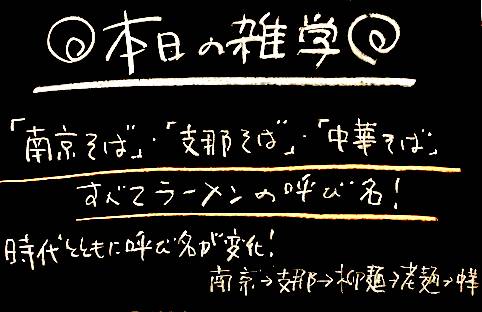 本日の雑学
「南京そば」・「支那そば」・「中華そば」
すべてラーメンの呼び名!
時代とともに呼び名が変化!
南京→支那→柳麺→老麺→中華